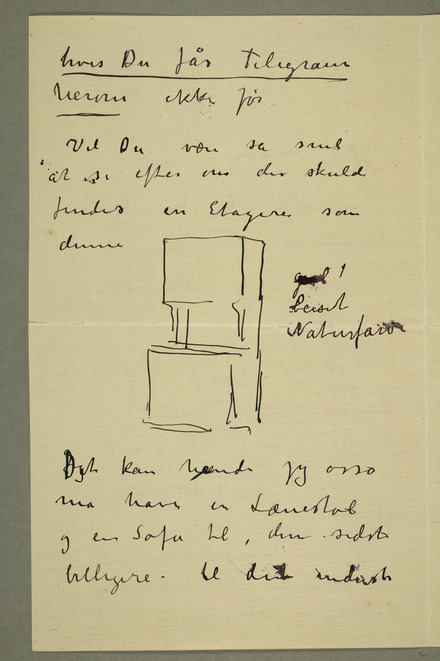 hvis Du får Telegram
herom ikke før
Vil Du være så snil
at se efter om der skulde
findes en Etagere som
denne
gul!
beiset
Naturfarve
Det kan hænde jeg også
må have en Lænestol
og en Sofa til, den sidste
billigere. til det